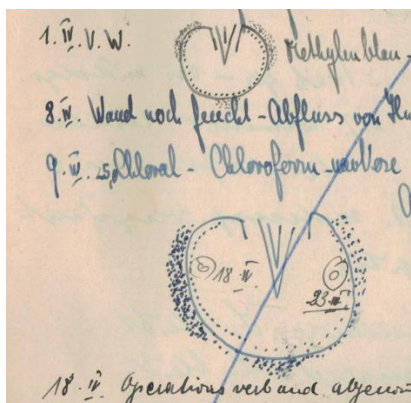 1. IV. V. W. Methylenblau-
8. IV. Wand noch feucht - Abfluss von
9. IV. 25 Chloral - Chloroform-narkose
18. IV
23. IV
18. IV Operationsverband abgenom